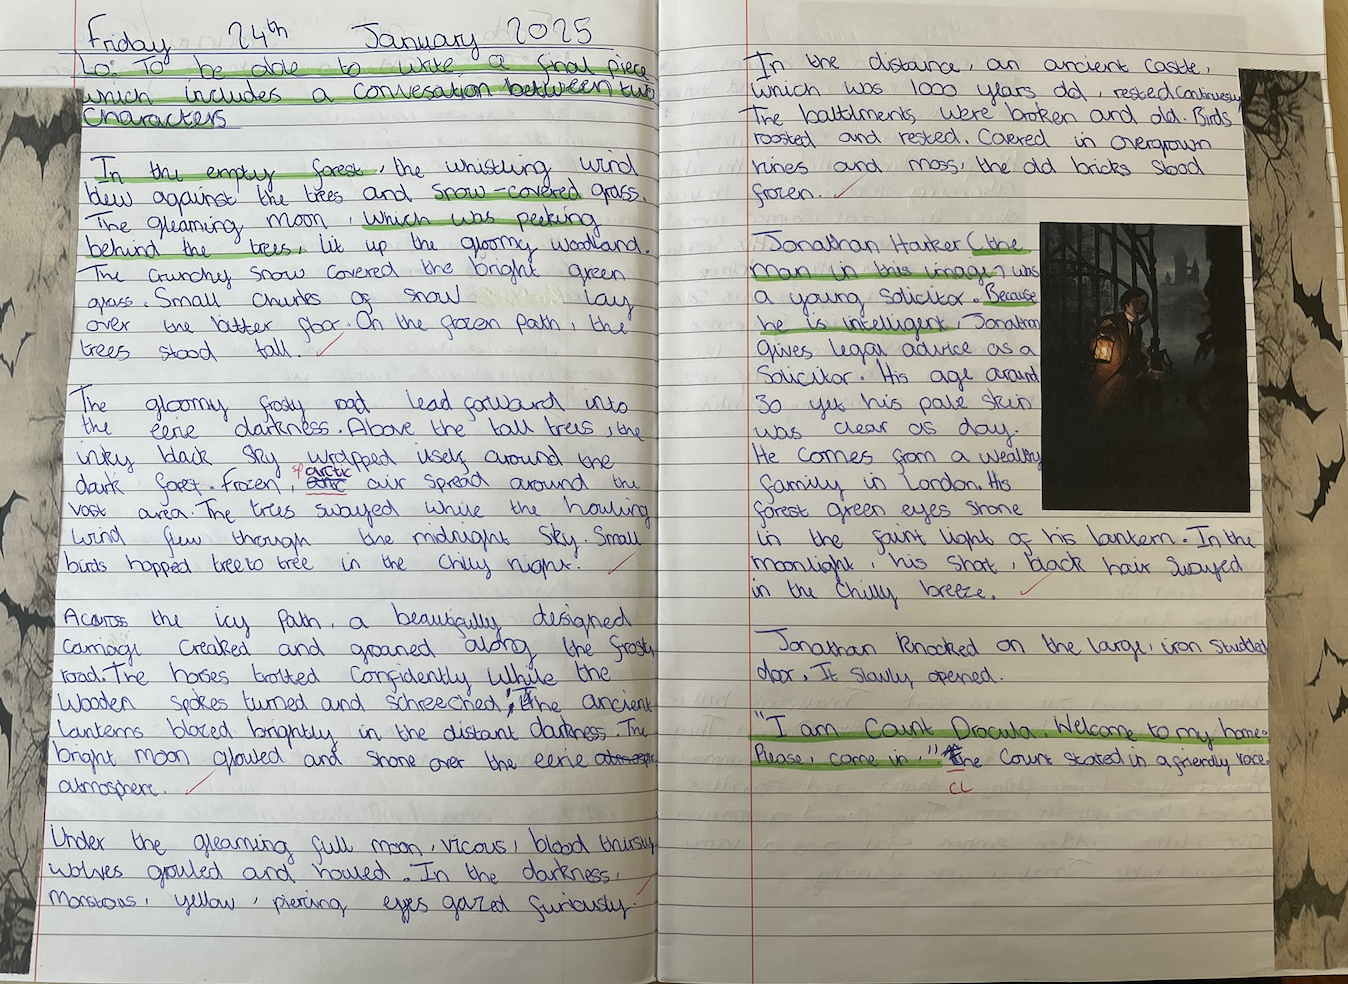 Friday 24th January 2025
Lo: To be able to write a final piece
which includes a convesation between two
Characters
In the empty forest, the whistling wind
blew against the trees and snow-covered grass.
The gleaming moon, which was peeking
behind the trees, lit up the gloomy woodland.
The crunchy snow covered the bright green
grass. Small chunks of snow lay
over the bitter floor. On the frozen path, the
trees stood tall.
The gloomy frosty road lead forward into
the eerie darkness. Above the tall trees, the
inky black sky wrapped itself around the
sp arctic
dark forest. Frozen, air spread around the
vast area. The trees swayed while the howling
wind flew through the midnight sky. Small
birds hopped tree to tree in the chilly night.
Across the icy path, a beautifully designed
carriage creaked and groaned along the frosty
road. The horses trotted confidently while the
wooden spokes turned and schreeched. The ancient
lanterns blazed brightly in the distant darkness. The
bright moon glowed and shone over the eerie
atmosphere.
Under the gleaming full moon, vicous, blood thirsty
wolves growled and howled. In the darkness,
monstrous, yellow, piercing eyes gazed furiously.
In the distance, an ancient castle,
which was 1000 years old, rested continuesly
The battlments were broken and old. Birds
roosted and rested. Covered in overgrown
vines and moss, the old bricks stood
frozen.
Jonathan Harker (the
man in this image) was
a young solicitor. Because
he is intelligent, Jonathan
gives legal advice as a
Solicitor. His age around
30 yet his pale skin
was clear as day.
He comes from a wealthy
family in London. His
forest green eyes shone
in the faint light of his lantern. In the
moonlight, his short, black hair swayed
in the chilly breeze.
Jonathan knocked on the large, iron studded
door. It slowly opened.
"I am Count Dracula. Welcome to my home.
Please, come in," the Count stated in a friendly voice.
CL